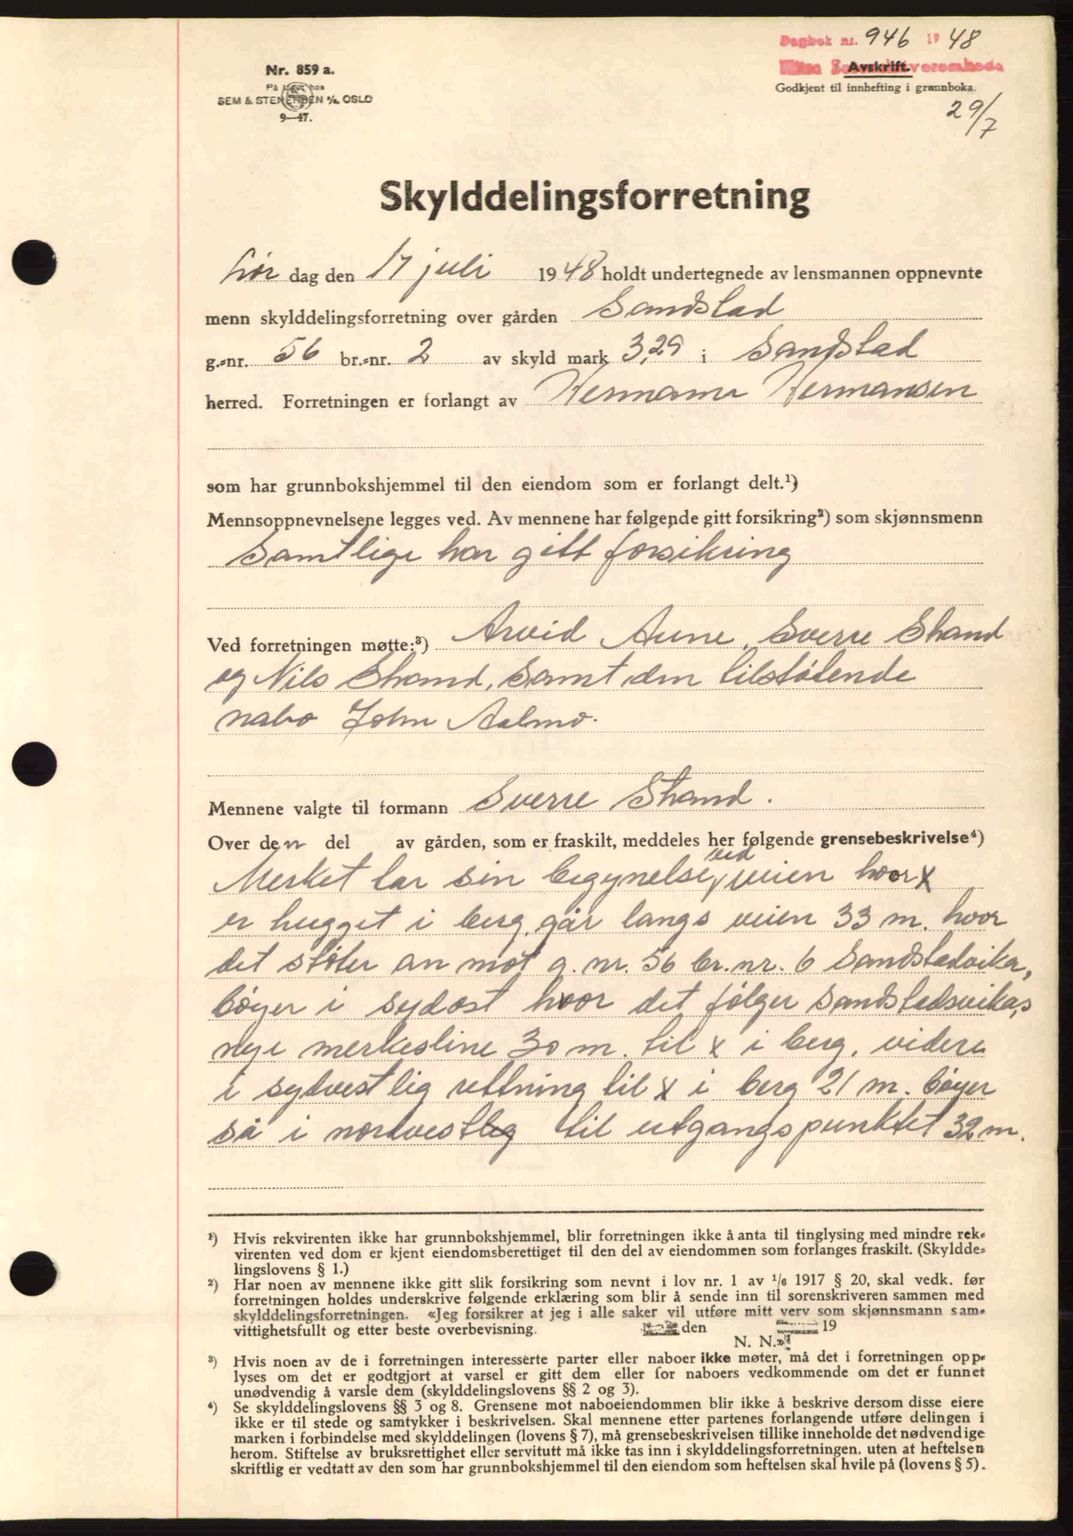 Dagbok nr. 946 1948
Avskrift.
Godkjent til innhefting i grønnboka.
29/7
Nr. 859 a.
På lager hos
SEM & STENERSEN A/S, OSLO
9—47.
Skylddelingsforretning
Lør dag den 17 juli 1948 holdt undertegnede av lensmannen oppnevnte
menn skylddelingsforretning over gården Sandstad
g.-nr. 56 br.-nr. 2 av skyld mark 3,29 i Sandstad
herred. Forretningen er forlangt av Hermann Hermansen
som har grunnbokshjemmel til den eiendom som er forlangt delt.¹)
Mennsoppnevnelsene legges ved. Av mennene har følgende gitt forsikring²) som skjønnsmenn
Samtlige har gitt forsikring
Ved forretningen møtte:³) Arvid Aune, Sverre Strand
og Nils Strand, Samt den tilstøtende
nabo John Aalmo.
Mennene valgte til formann Sverre Strand.
Over den del av gården, som er fraskilt, meddeles her følgende grensebeskrivelse⁴)
Merket tar sin begynelse ved veien hvor x
er hugget i berg, går langs veien 33 m. hvor
det støter an mot g. nr. 56 br. nr. 6 Sandstadvika,
bøyer i sydøst hvor det følger Sandstadsvikas
nye merkesline 30 m. til x i berg, videre
i sydvestlig rettning til x i berg 21 m. bøyer
så i nordvestlig til utgangspunktet 32 m.
¹) Hvis rekvirenten ikke har grunnbokshjemmel, blir forretningen ikke å anta til tinglysing med mindre rek-
virenten ved dom er kjent eiendomsberettiget til den del av eiendommen som forlanges fraskilt. (Skyldde-
lingslovens § 1.)
²) Har noen av mennene ikke gitt slik forsikring som nevnt i lov nr. 1 av 1/6 1917 § 20, skal vedk. før
forretningen holdes underskrive følgende erklæring som blir å sende inn til sorenskriveren sammen med
skylddelingsforretningen. «Jeg forsikrer at jeg i alle saker vil utføre mitt verv som skjønnsmann sam-
vittighetsfullt og etter beste overbevisning. den 19
N. N.»
³) Hvis noen av de i forretningen interesserte parter eller naboer ikke møter, må det i forretningen opp-
lyses om det er godtgjort at varsel er gitt dem eller for naboers vedkommende om det er funnet
unødvendig å varsle dem (skylddelingslovens §§ 2 og 3).
⁴) Se skylddelingslovens §§ 3 og 8. Grensene mot naboeiendommen blir ikke å beskrive dersom disse eiere
ikke er til stede og samtykker i beskrivelsen. Skal mennene etter partenes forlangende utføre delingen i
marken i forbindelse med skylddelingen (lovens § 7), må grensebeskrivelsen tillike inneholde det nødvendige
herom. Stiftelse av bruksrettighet eller servitutt må ikke tas inn i skylddelingsforretningen, uten at heftelsen
skriftlig er vedtatt av den som har grunnbokshjemmel til den eiendom som heftelsen skal hvile på (lovens § 5).